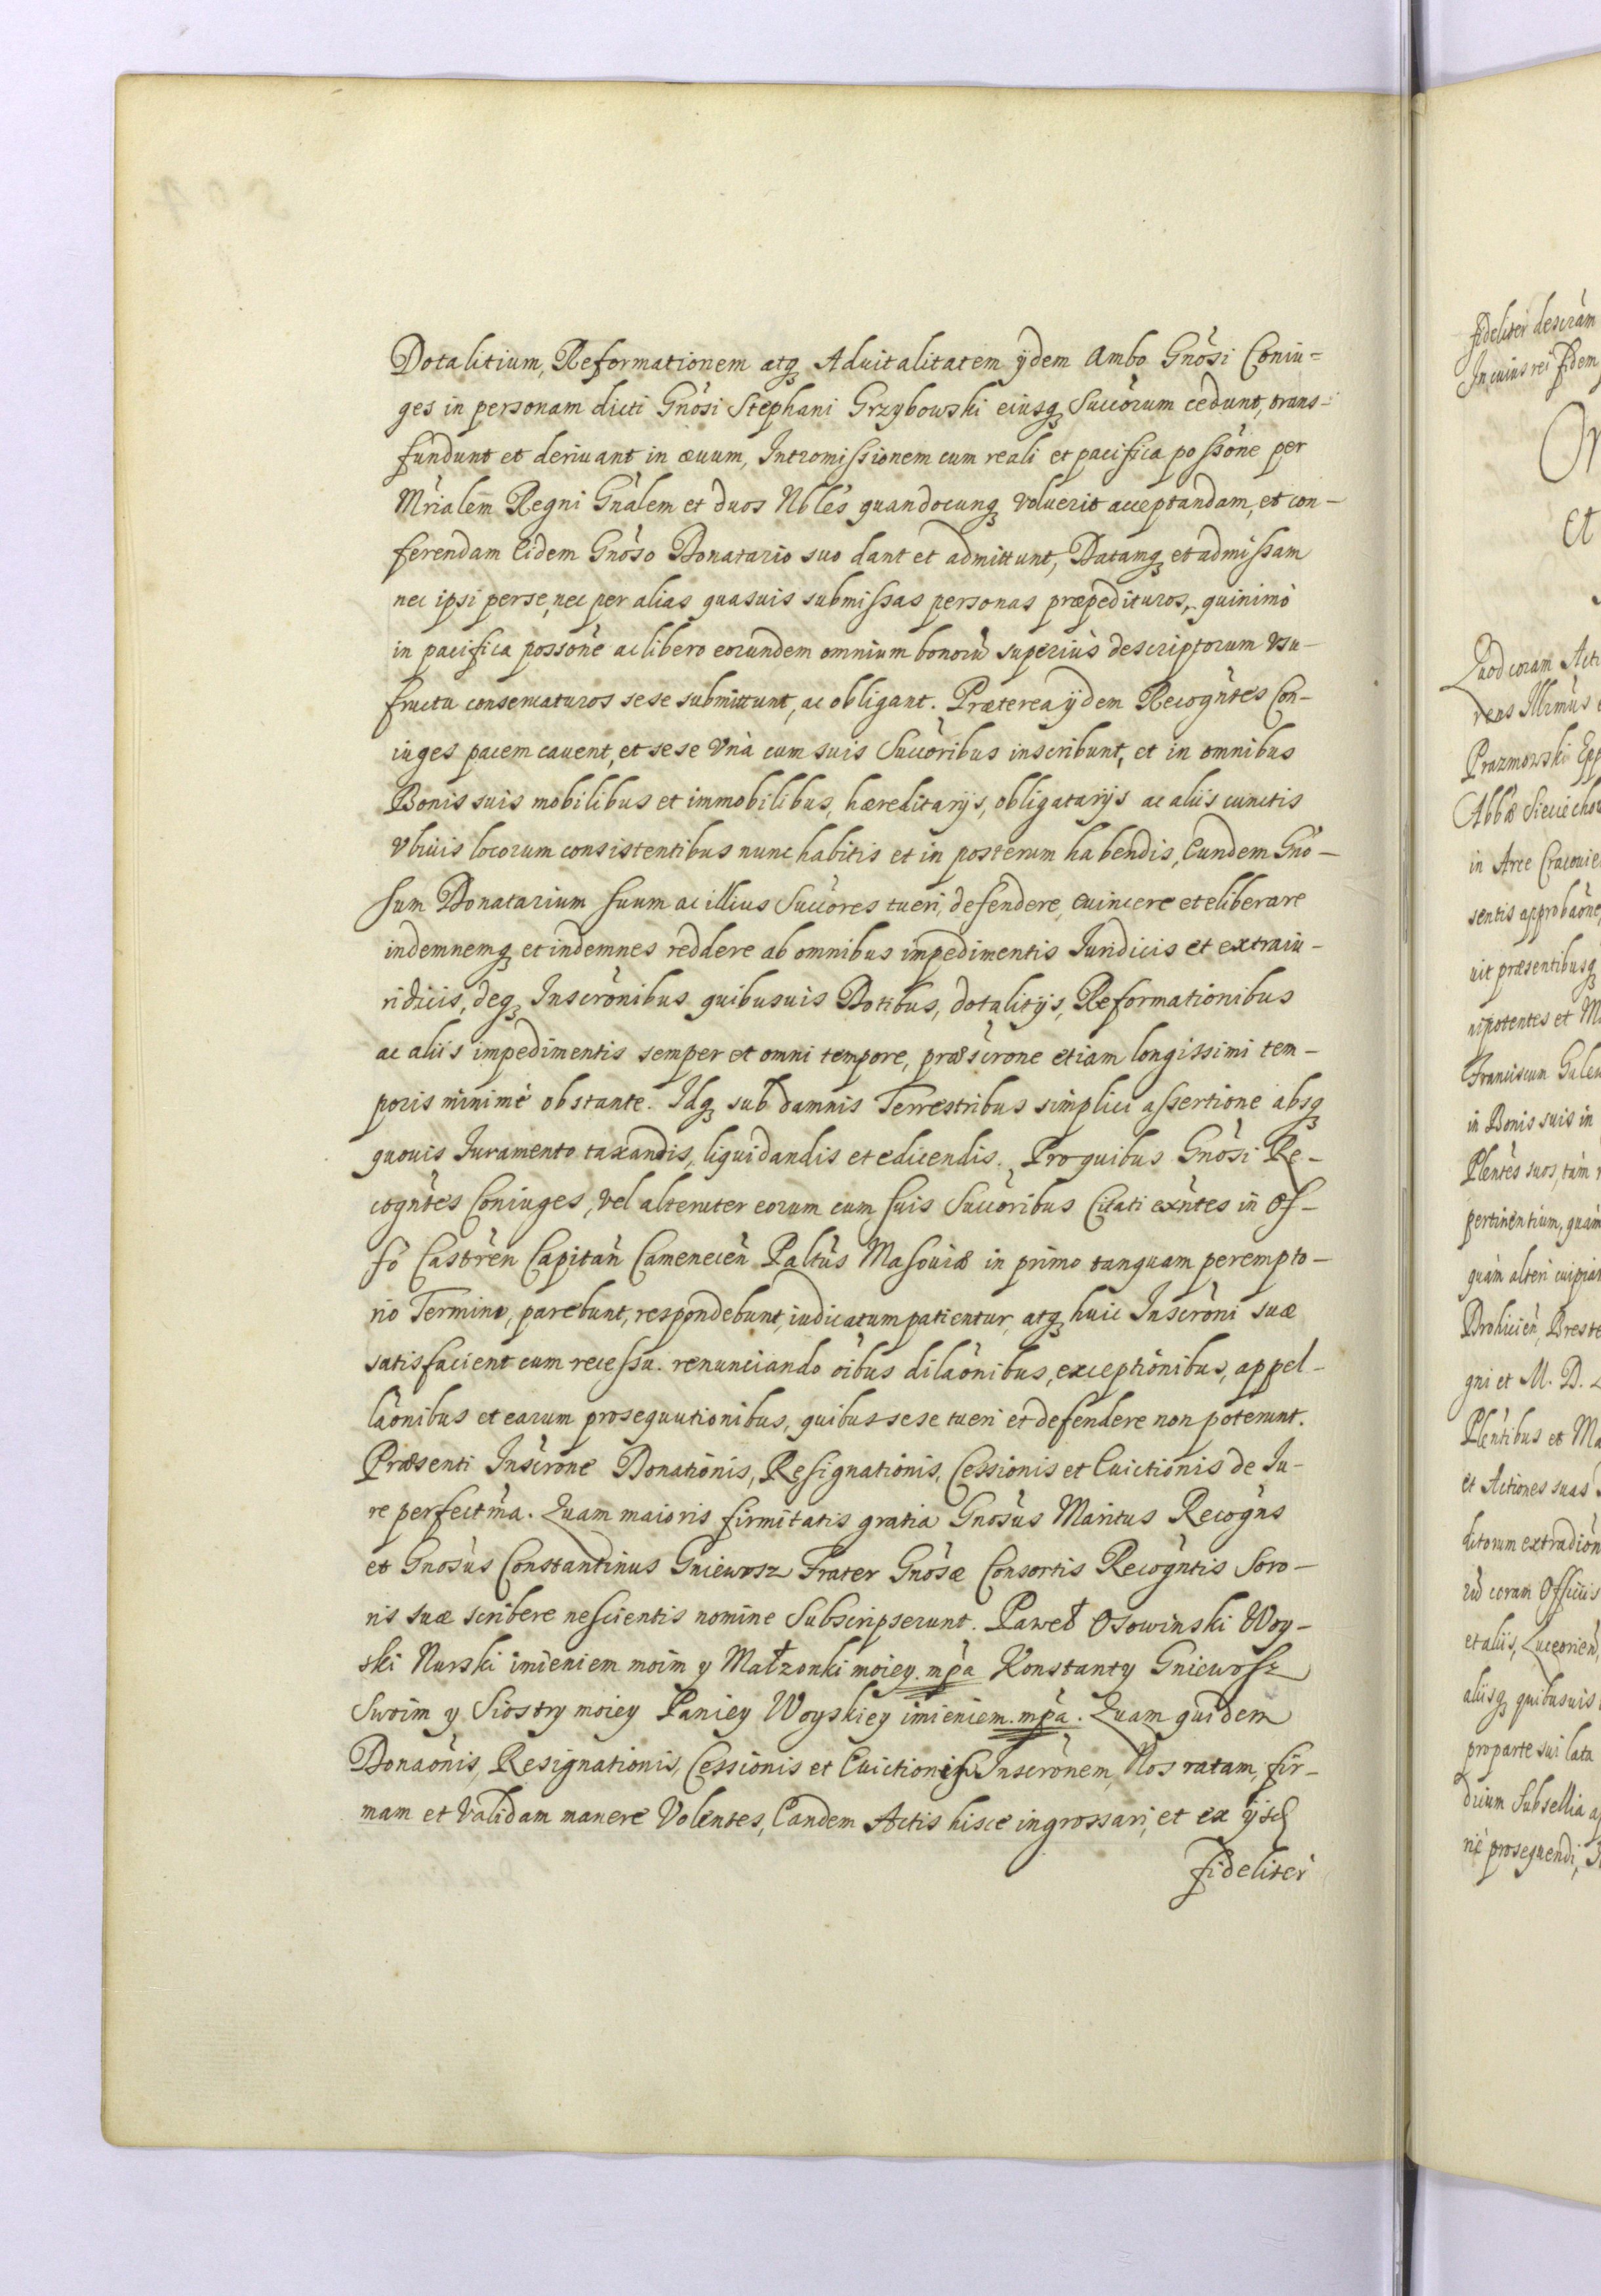 Dotalitium, Reformationem atq₃ Aduitalitatem ijdem ambo Gnòsi Coniu=
ges in personam dicti Gnòsi Stephani Grzybowski eiusq₃ Succòrum cedunt, trans-
fundunt et deriuant in æuum, Intromissionem cum reali et pacifica possòne per
Mrìalem Regni Gnàlem et duos Nbles quandocunq₃ voluerit acceptandam, et con-
ferendam Eidem Gnòso Donatario suo dant et admittunt, Datamq₃ et admissam
nec ipsi per se, nec per alias quasuis submissas personas præpedituros, quinimò
in pacifica possòne ac libero eorundem omnium bonorũ superiùs descriptorum vsu-
fructu conseruaturos sese submittunt, ac obligant. Præterea ijdem Recogntes Con-
iuges pacem cauent, et sese vnà cum suis Succòribus inscribunt, et in omnibus
Bonis suis mobilibus et immobilibus, hæreditarijs, obligatarijs ac aliis cunctis
vbiuis locorum consistentibus nunc habitis et in posterum habendis, Eundem Gno-
sum Donatarium suum ac illius Succòres tueri, defendere, euincere et eliberare
indemnemq₃ et indemnes reddere ab omnibus impedimentis Iuridicis et extraiu-
ridicis, deq₃ Inscrònibus quibusuis Dotibus, dotalitijs, Reformationibus
ac aliis impedimentis semper et omni tempore, præscròne etiam longissimi tem-
poris minimè obstante. Idq₃ sub damnis Terrestribus simplici assertione absq₃
quouis Iuramento taxandis, liquidandis et edicendis. Pro quibus Gnòsi Re-
cogntes Coniuges, vel alteruter eorum cum suis Succòribus Citati exntes in Of-
fò Castren Capitan Camenecen Paltùs Masouiæ in primo tanquam perempto-
rio Termino, parebunt, respondebunt, iudicatum patientur, atq₃ huic Inscròni suæ
satisfacient cum recessu. renunciando òibus dilaònibus, exceptionibus, appel-
laònibus et earum prosequutionibus, quibus sese tueri et defendere non poterunt.
Præsenti Inscròne Donationis, Resignationis, Cessionis et Euictionis de Iu-
re perfectma. Quam maioris firmitatis gratia Gnosùs Maritus Recogns
et Gnosùs Constantinus Gniewosz Frater Gnòsæ Consortis Recogntis Soro-
ris suæ scribere nescientis nomine Subscripserunt. Paweł Osowinski Woy-
ski Nurski imieniem moim y Małzonki moiey. mpà Konstanty Gniewosz
Swoim y Siostry moiey Paniey Woyskiey imieniem. mpà. Quam quidem
Donaònis, Resignationis, Cessionis et Euictionis Inscrònem, Nos ratam, fir-
mam et validam manere Volentes, Eandem Actis hisce ingrossari, et ex ijsd
fideliter
fideliter descràm
In cuius rei fidem
Et
Quod coram Acti
rens Illrmùs
Prazmowski Epp
Abbæ Sieciecho
in Arce Cracouie
sentis approbaòne,
uit præsentibusq₃
nipotentes et M
Franciscum Gale
in Bonis suis in
Plentes suos, tàm
pertinentium, quàm
quàm alteri cuipia
Drohicien, Breste
gni et M. D.
Plentibus et Ma
et Actiones suas
ditorum extradiòn
rũ coram Officiis
et aliis, Luceorien,
aliisq₃ quibusuis
pro parte sui lata
dicium Subsellia a
riè prosequendi,